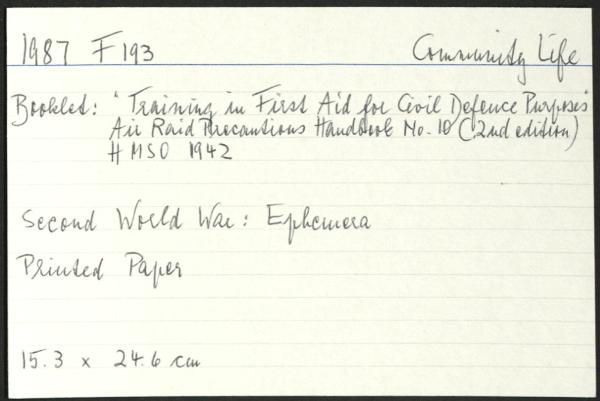 1987 F193 Community Life
Booklet: "Training in First Aid for Civil Defence Purposes"
Air Raid Precautions Handbook No. 10 (2nd edition)
HMSO 1942
Second World War: Ephemera
Printed Paper
15.3 x 24.6 cm